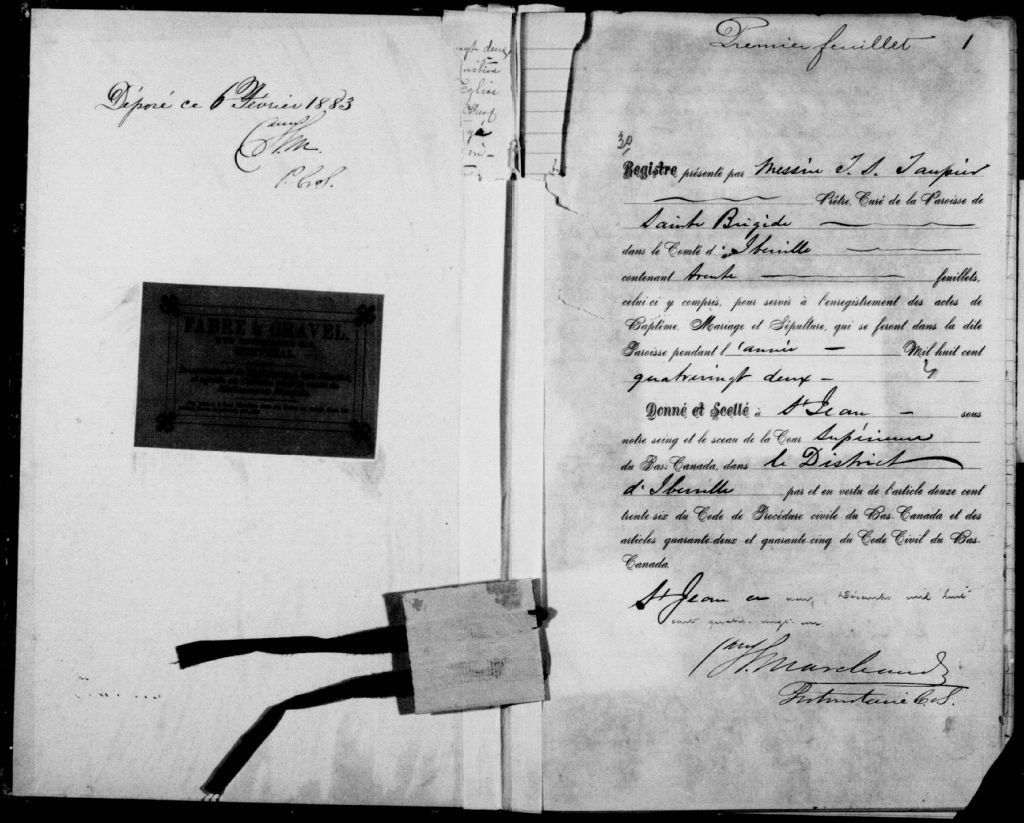 Déposé ce 6 Février 1883
P.C.S.
FABRE & GRAVEL,
MONTREAL
gt deux
Eglise
Premier feuillet 1
30
Registre présenté par Messire J. S. Taupier
Prêtre, Curé de la Paroisse de
Sainte Brigide
dans le Comté d'Iberville
contenant trente feuillets,
celui-ci y compris, pour servir à l'enregistrement des actes de
Baptême, Mariage et Sépulture, qui se feront dans la dite
Paroisse pendant l'année — Mil huit cent
quatrevingt deux —
Donné et Scellé à St Jean — sous
notre seing et le sceau de la Cour Supérieure
du Bas-Canada, dans le District
d'Iberville par et en vertu de l'article douze cent
trente-six du Code de Procédure civile du Bas-Canada et des
articles quarante-deux et quarante-cinq du Code Civil du Bas-
Canada.
St Jean ce neuf Décembre mil huit
cent quatre-vingt-un
H. Marchand
Protonotaire C.S.